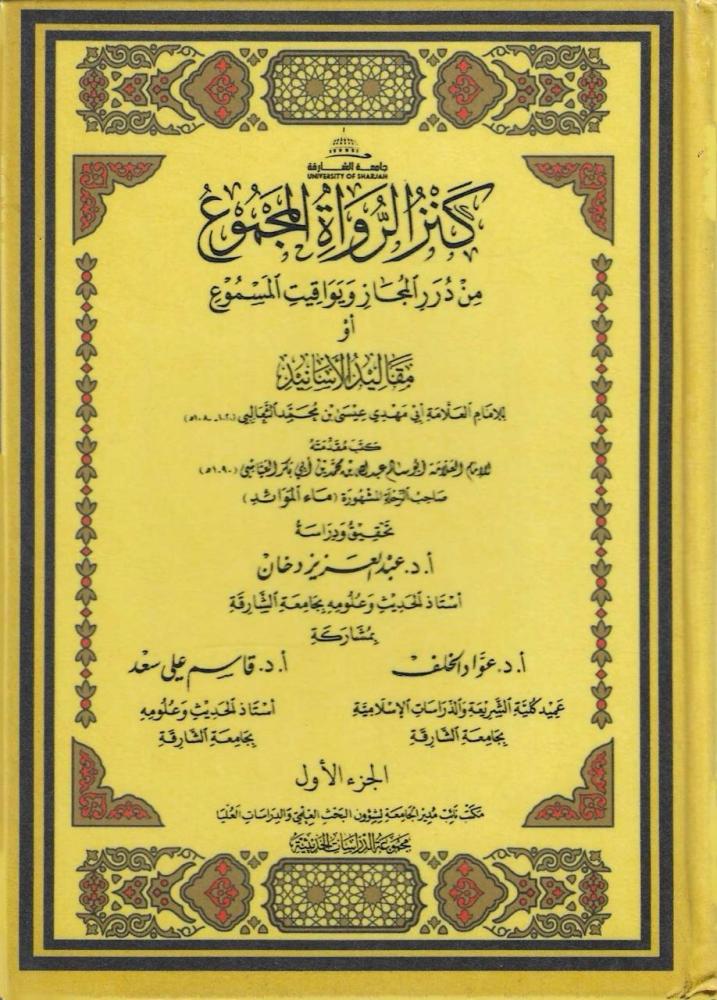 جامعة الشارقة
UNIVERSITY OF SHARJAH
كَنْزُ الرُّوَاةِ المَجْمُوعُ
مِنْ دُرَرِ المُجَازِ وَيَوَاقِيتِ المَسْمُوعِ
أو
مَقَالِيدُ الأَسَانِيدِ
للإمام العلّامة أبي مهدي عيسى بن محمّد الثعالبي (١٠٢٠-١٠٨٠هـ)
كتب مقدّمته
للإمام العلّامة أبو سالم عبد الله بن محمد بن أبي بكر العيّاشي (١٠٩٠هـ)
صاحب الرّحلة المشهورة (ماء الموائد)
تحقيق ودراسة
أ. د. عبد العزيز دخان
أستاذ الحديث وعلومه بجامعة الشّارقة
بمشاركة
أ. د. عوّاد الخلف
أ. د. قاسم علي سعد
عميد كليّة الشّريعة والدّراسات الإسلاميّة
أستاذ الحديث وعلومه
بجامعة الشّارقة
بجامعة الشّارقة
الجزء الأول
مكتب نائب مدير الجامعة لشؤون البحث العلمي والدراسات العليا
مجموعة الدراسات الحديثية